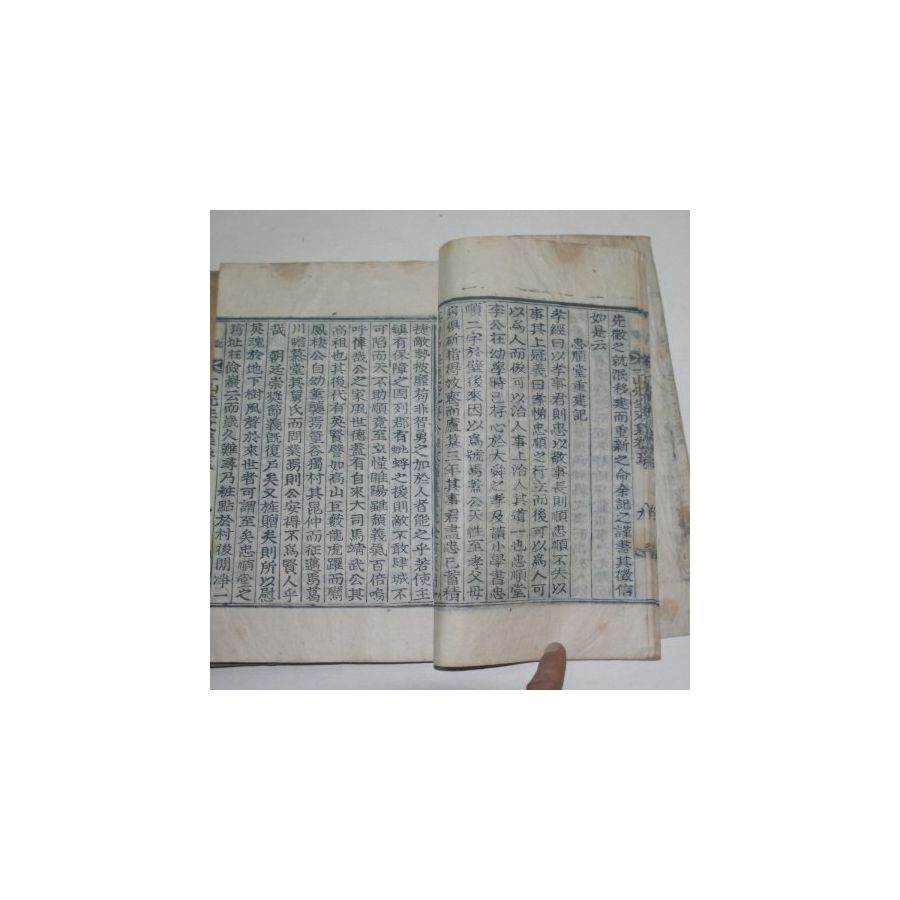 先徽之就泯移建而重新之命余記之謹書其徵信
如是云
忠順堂重建記
孝經曰以孝事君則忠以敬事長則順忠順不失以
事其上冠義曰孝悌忠順之行立而後可以爲人可
以爲人而後可以治人事上治人其道一也忠順堂
李公在幼學時已存心於大舜之孝及讀小學書忠
順二字於壁後來因以爲號焉蓋公天性至孝父母
病俱斫指得效哀而廬墓三年其事君盡忠已蓄積
捷敵勢披靡苟非智勇之加於人者能之乎若使主
鎮有保障之固列郡有蚍蜉之後則敵不敢肆城不
可陷而天不助順竟至立慬睢陽雖頹義氣百倍嗚
呼偉哉公之家風世德蓋有自來大司馬靖武公其
高祖也其後代有英賢譬如高山巨藪龍虎躍而
風棲公自幼薰襲焉
川瞻慕堂其舅氏而問業焉則公安得不爲賢人乎
哉 朝廷崇奬節義旣復戶矣又旌贈矣則所以慰
英魂於地下樹風聲於來世者可謂至矣忠順堂之
舊址在險巖云而歲久難尋乃粧點於村後開淨二